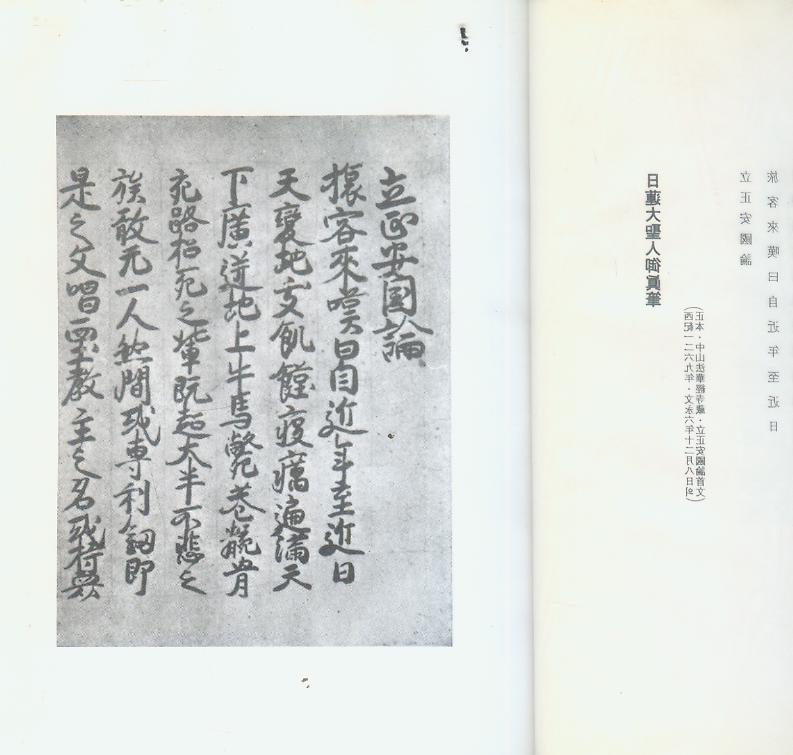 立正安国論
旅客來嘆曰自近年至近日
天變地夭飢饉疫癘遍満天
下廣迸地上牛馬斃巷骸骨
充路招死之輩既超大半不悲之
族敢无一人然間或専利釼即
是之文唱西土教主之名或持衆
日蓮大聖人御眞筆
(西紀一二六九年・文永六年十二月八日의
正本・中山法華經寺藏・立正安國論首文)
立正安國論
旅客來嘆曰自近年至近日